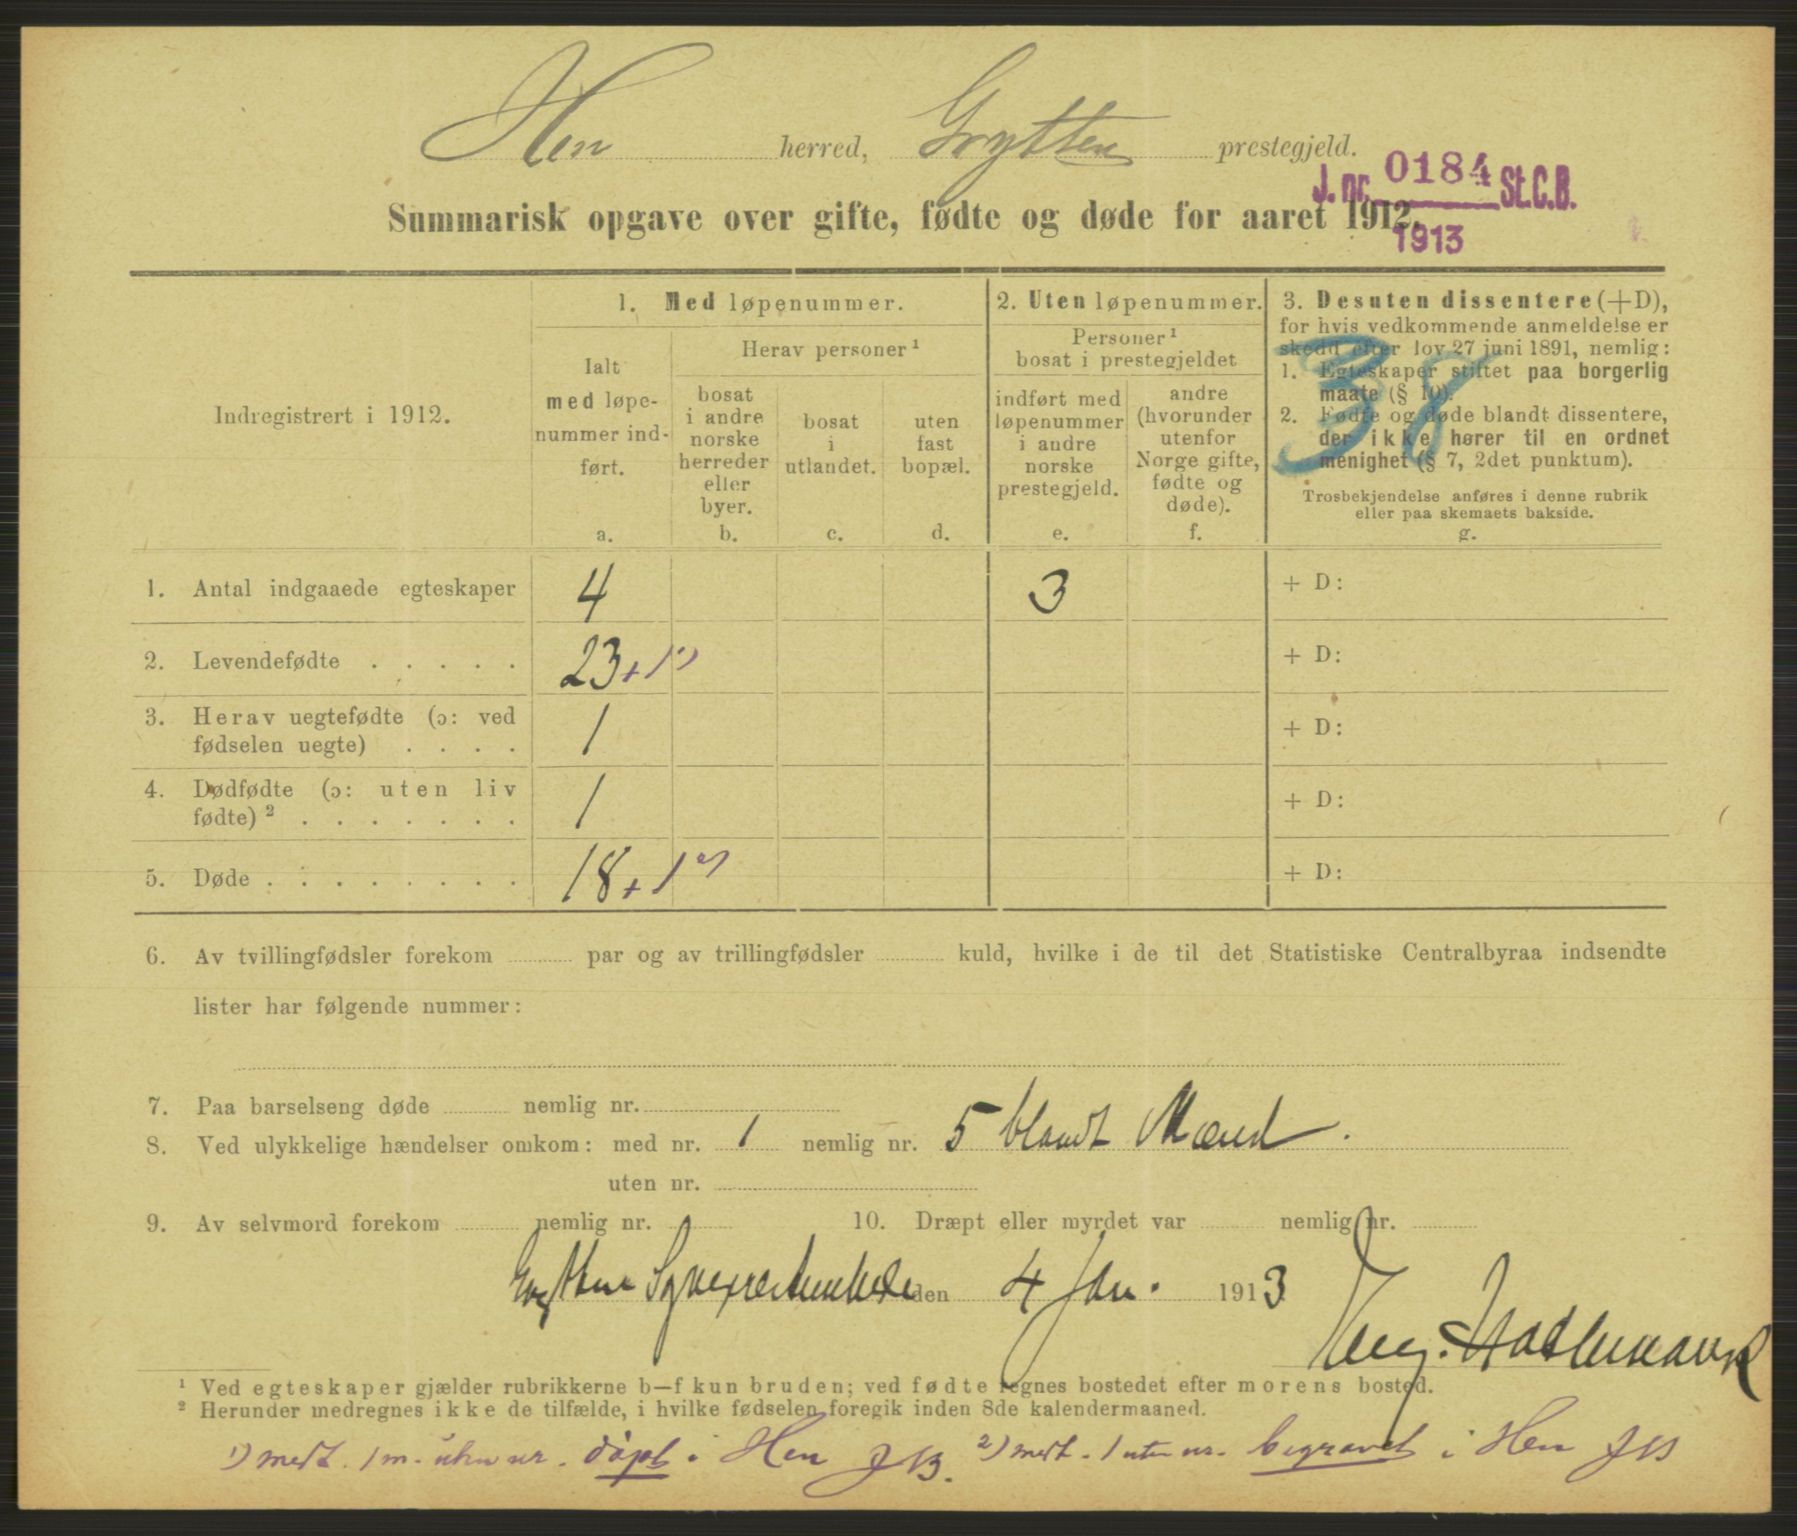 Hen herred, Grytten prestegjeld.
J. nr. 0184 St.C.B.
1913
Summarisk opgave over gifte, fødte og døde for aaret 1912.
Indregistrert i 1912.
1. Med løpenummer.
Ialt med løpe-
nummer ind-
ført.
a.
Herav personer¹
bosat
i andre
norske
herreder
eller
byer.
b.
bosat
i
utlandet.
c.
uten
fast
bopæl.
d.
2. Uten løpenummer.
Personer¹
bosat i prestegjeldet
indført med
løpenummer
i andre
norske
prestegjeld.
e.
andre
(hvorunder
utenfor
Norge gifte,
fødte og
døde).
f.
3. Desuten dissentere (+D),
for hvis vedkommende anmeldelse er
skedd efter lov 27 juni 1891, nemlig:
1. Egteskaper stiftet paa borgerlig
maate (§ 10).
2. Fødte og døde blandt dissentere,
der ikke hører til en ordnet
menighet (§ 7, 2det punktum).
Trosbekjendelse anføres i denne rubrik
eller paa skemaets bakside.
g.
1. Antal indgaaede egteskaper 4 3 + D:
2. Levendefødte . . . . . 23 + 1 ¹) + D:
3. Herav uegtefødte (ɔ: ved
fødselen uegte) . . . . 1 + D:
4. Dødfødte (ɔ: uten liv
fødte)² . . . . . . . 1 + D:
5. Døde . . . . . . . . 18 + 1 ²) + D:
6. Av tvillingfødsler forekom par og av trillingfødsler kuld, hvilke i de til det Statistiske Centralbyraa indsendte
lister har følgende nummer:
7. Paa barselseng døde nemlig nr.
8. Ved ulykkelige hændelser omkom: med nr. 1 nemlig nr. 5 blandt Mænd.
uten nr.
9. Av selvmord forekom nemlig nr. 10. Dræpt eller myrdet var nemlig nr.
Grytten den 4 Jan. 1913
¹ Ved egteskaper gjælder rubrikkerne b—f kun bruden; ved fødte regnes bostedet efter morens bosted.
² Herunder medregnes ikke de tilfælde, i hvilke fødselen foregik inden 8de kalendermaaned.
1) medt. 1 m. uten nr. døpt i Hen
2) medt. 1 uten nr. begravet i Hen